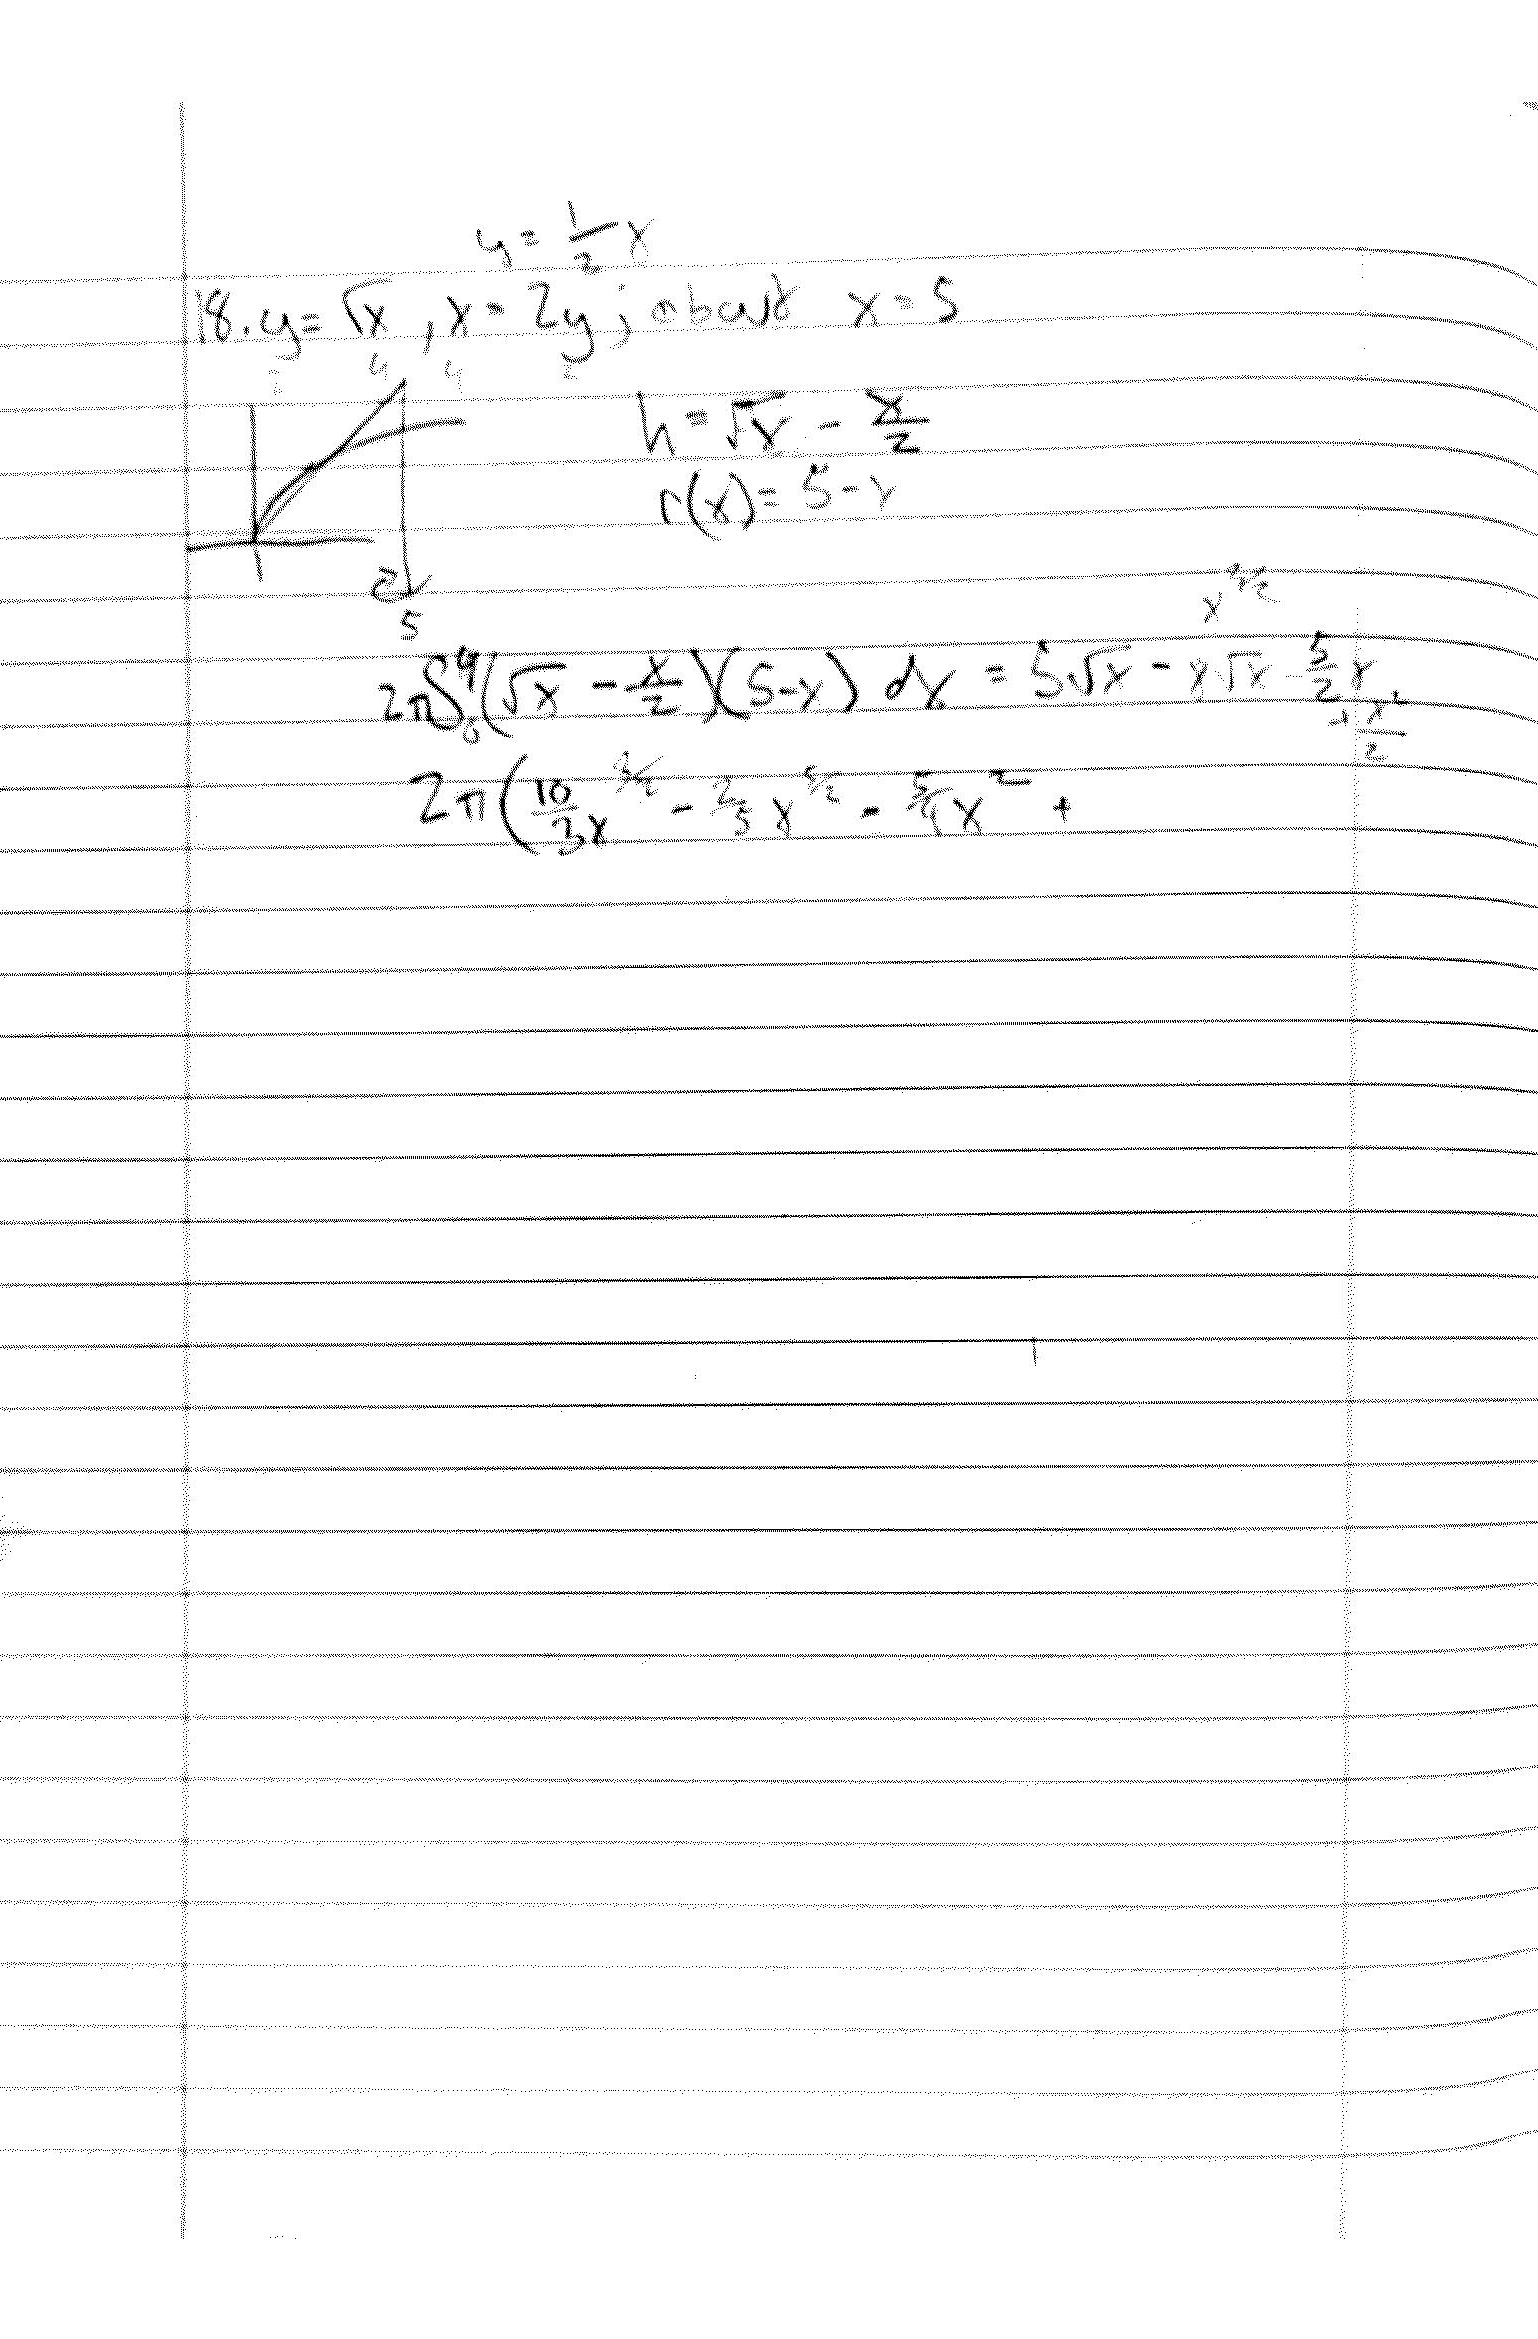 y = 1/2 x
18. y = √x , x = 2y ; about x = 5
4 4
h = √x - x/2
r(x) = 5 - x
5
x^3/2
2π∫₀⁴ (√x - x/2)(5-x) dx = 5√x - x√x - 5/2 x + x²/2
2π ( 10/3 x^3/2 - 2/5 x^5/2 - 5/4 x² +